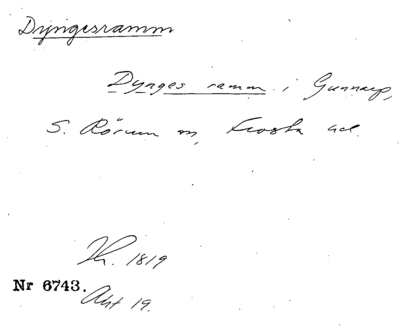 Dyngesramm
Dynges ramm i Gunnarp,
S. Rörum sn, Frosta hd.
Kr. 1819
Nr 6743.
Akt 19.